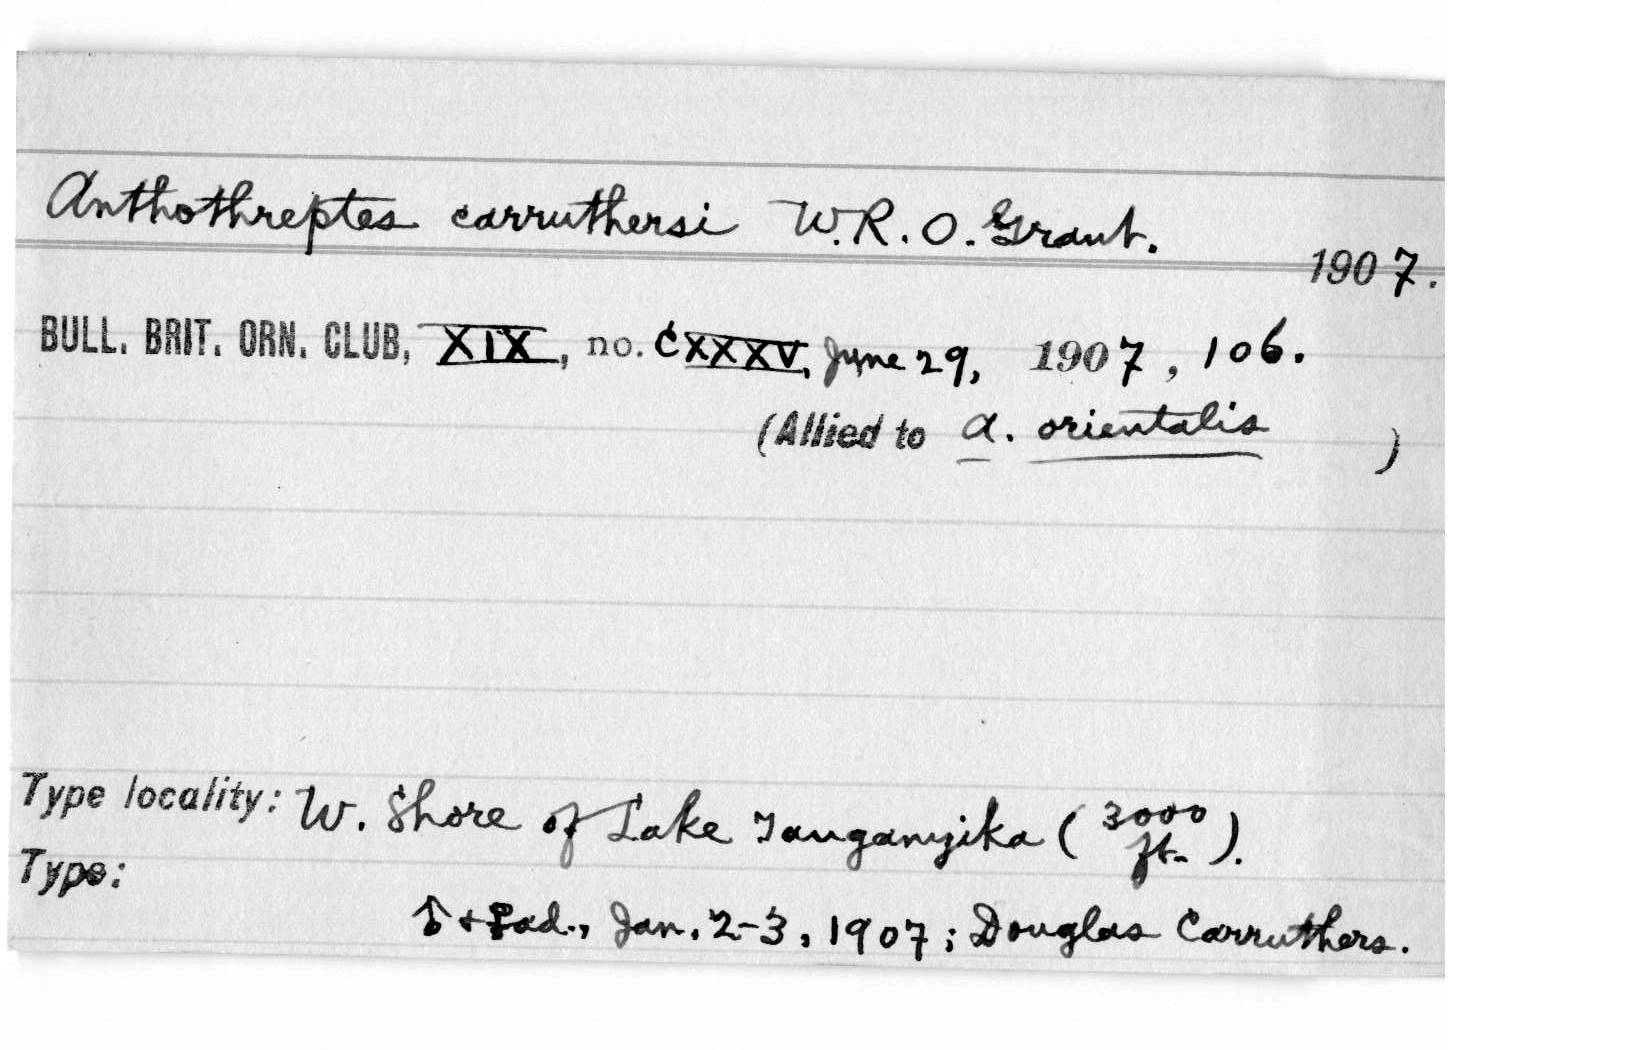 Anthothreptes carruthersi W.R.O. Grant.
1907.
BULL. BRIT. ORN. CLUB, XIX, no. CXXXV, June 29, 1907, 106.
(Allied to A. orientalis )
Type locality: W. Shore of Lake Tanganyika (3000 ft.).
Type:
♂ + ♀ ad., Jan. 2-3, 1907; Douglas Carruthers.